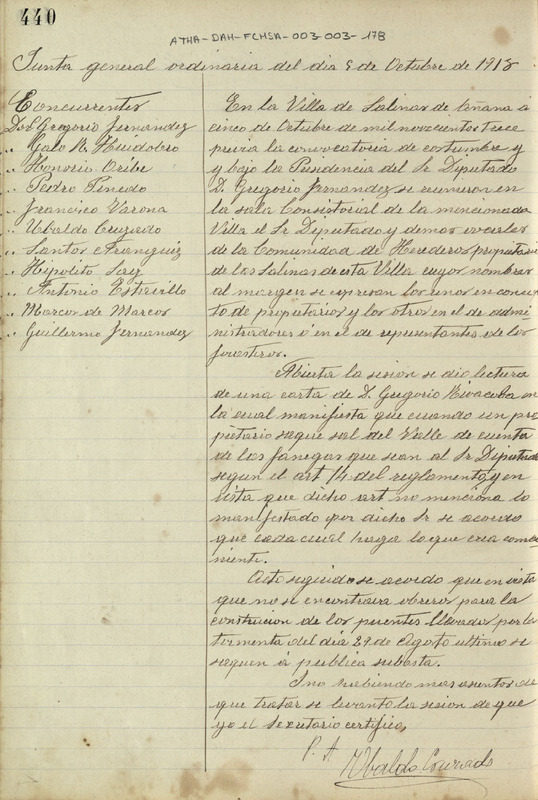 440
ATHA-DAH-FCHSA-003-003-178
Junta general ordinaria del dia 5 de Octubre de 1913
Concurrentes
Dn Gregorio Fernandez
" Galo R. Huidobro
" Honorio Oribe
" Pedro Pinedo
" Francisco Varona
" Ubaldo Cuejado
" Santos Franguiz
" Hypolito Saiz
" Antonio Estavillo
" Marcos de Marcos
" Guillermo Fernandez
En la Villa de Salinas de Añana á
cinco de Octubre de mil novecientos trece
previa la convocatoria de costumbre y
y bajo la Presidencia del Sr Diputado
D. Gregorio Fernandez se reunieron en
la sala Consistorial de la mencionada
Villa el Sr Diputado y demas vocales
de la Comunidad de Herederos propietarios
de las Salinas de esta Villa cuyos nombres
al margen se expresan los unos en concep
to de propietarios y los otros en el de admi
nistradores ó en el de representantes de los
forasteros.
Abierta la sesion se dio lectura
de una carta de D. Gregorio en
la cual manifiesta que cuando un pro
pietario saque sal del Valle de cuenta
de las fanegas que sean al Sr Diputado
segun el art 14 del reglamento y en
vista que dicho art no menciona lo
manifestado por dicho Sr se acordo
que cada cual haga lo que crea conve
niente.
Acto seguido se acordo que en vista
que no se encontrava obreros para la
construcion de los puentes llevados por la
tormenta del dia 29 de Agosto ultimo se
saquen á publica subasta.
I no habiendo mas asuntos de
que tratar se levanto la sesion de que
yo el Secretario certifico,
P. A
Ubaldo